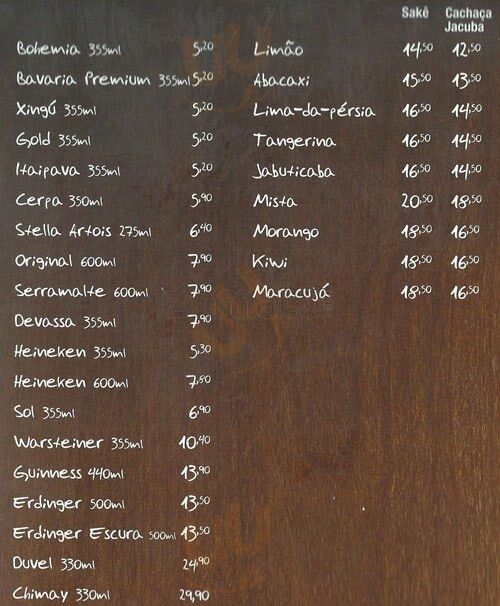 Bohemia 355ml 5,20
Bavaria Premium 355ml 5,20
Xingú 355ml 5,20
Gold 355ml 5,20
Itaipava 355ml 5,20
Cerpa 350ml 5,90
Stella Artois 275ml 6,40
Original 600ml 7,90
Serramalte 600ml 7,90
Devassa 355ml 7,90
Heineken 355ml 5,30
Heineken 600ml 7,50
Sol 355ml 6,90
Warsteiner 355ml 10,40
Guinness 440ml 13,90
Erdinger 500ml 13,50
Erdinger Escura 500ml 13,50
Duvel 330ml 24,90
Chimay 330ml 29,90
Sakê Cachaça
Jacuba
Limão 14,50 12,50
Abacaxi 15,50 13,50
Lima-da-pérsia 16,50 14,50
Tangerina 16,50 14,50
Jabuticaba 16,50 14,50
Mista 20,50 18,50
Morango 18,50 16,50
Kiwi 18,50 16,50
Maracujá 18,50 16,50